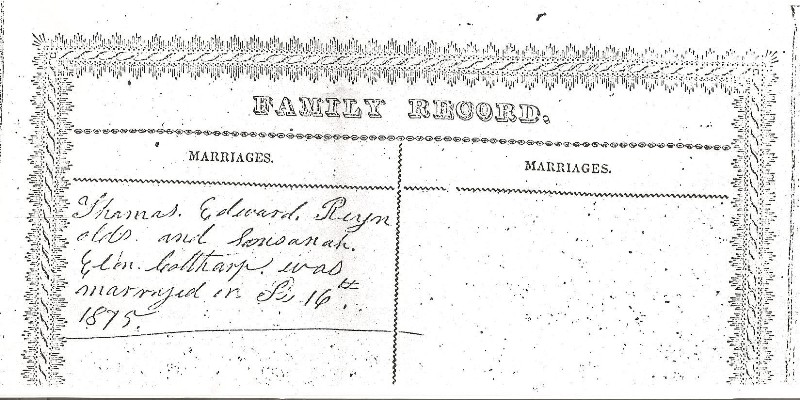 FAMILY RECORD.
MARRIAGES.
Thomas. Edward. Reyn
olds. and Sousanah.
Elen. Coltharp. was
marryed in 16th.
1875.
MARRIAGES.